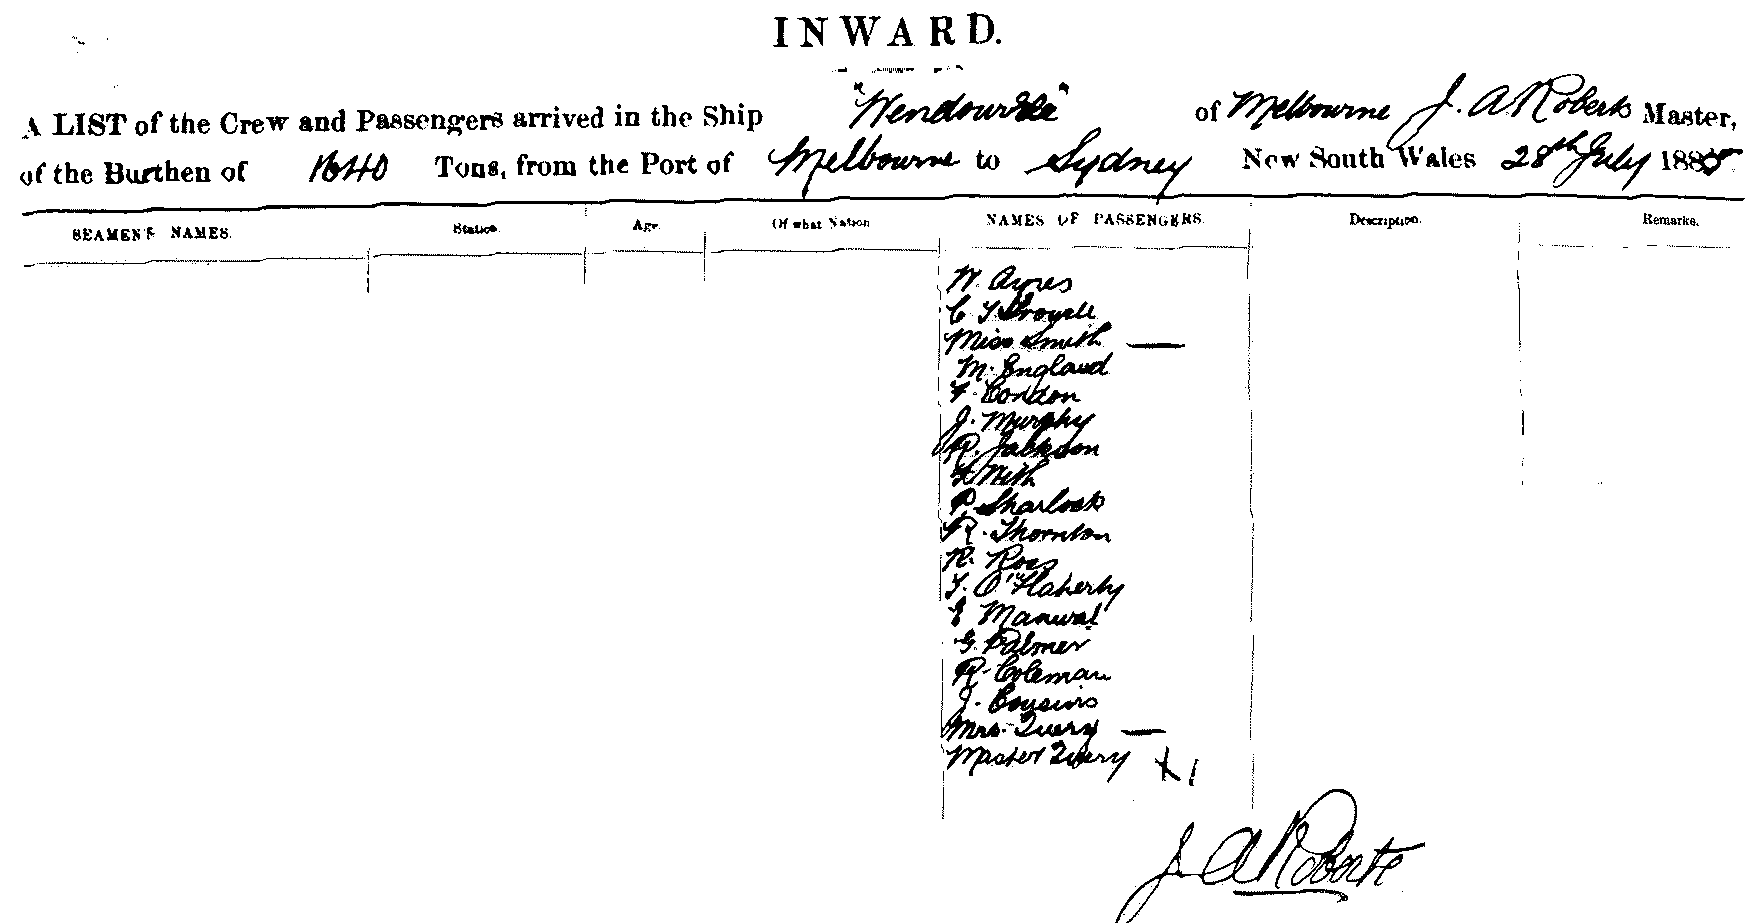 INWARD.
A LIST of the Crew and Passengers arrived in the Ship "Wendouree" of Melbourne J. A Roberts Master,
of the Burthen of 1640 Tons, from the Port of Melbourne to Sydney New South Wales 28th July 1885
SEAMEN'S NAMES. Station. Age. Of what Nation NAMES OF PASSENGERS. Description. Remarks.
W. Ayres
C
Miss Smith —
M. England
F. Condon
J. Murphy
R. Jackson
P. Sharlock
R. Thornton
R. Ross
T. O'Flaherty
E Manual
G. Palmer
R. Coleman
J. Cousins
Mrs. Query —
Master Query X 1
J. A Roberts